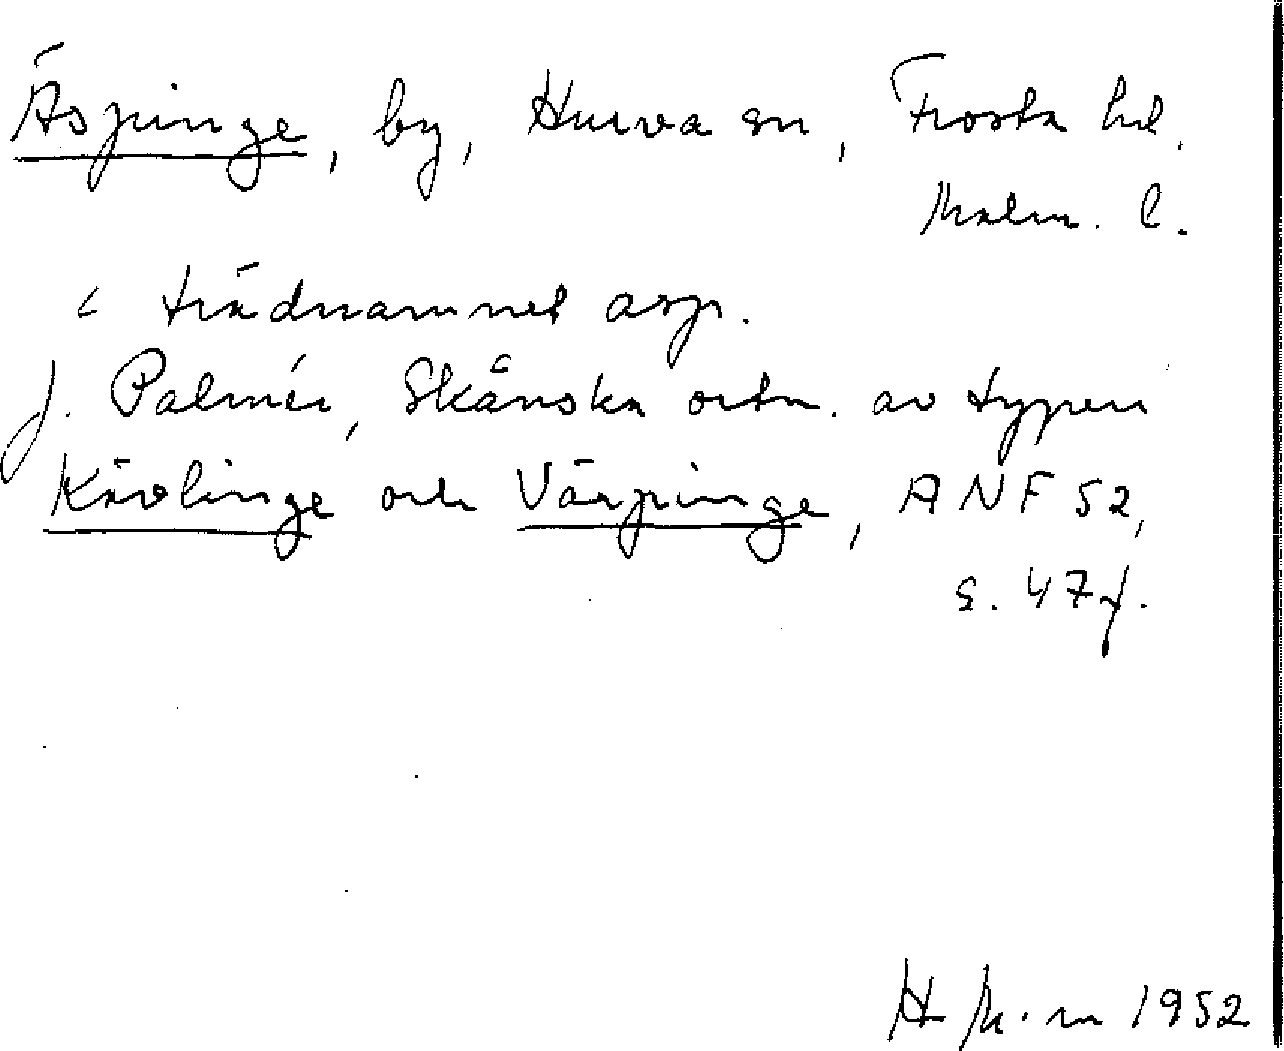 Äspinge, by, Hurva sn, Frosta hd.
Malm. l.
< trädnamnet asp.
J. Palmér, Skånska ortn. av typen
Kävlinge och Värpinge, ANF 52,
s. 47 f.
H M. m 1952